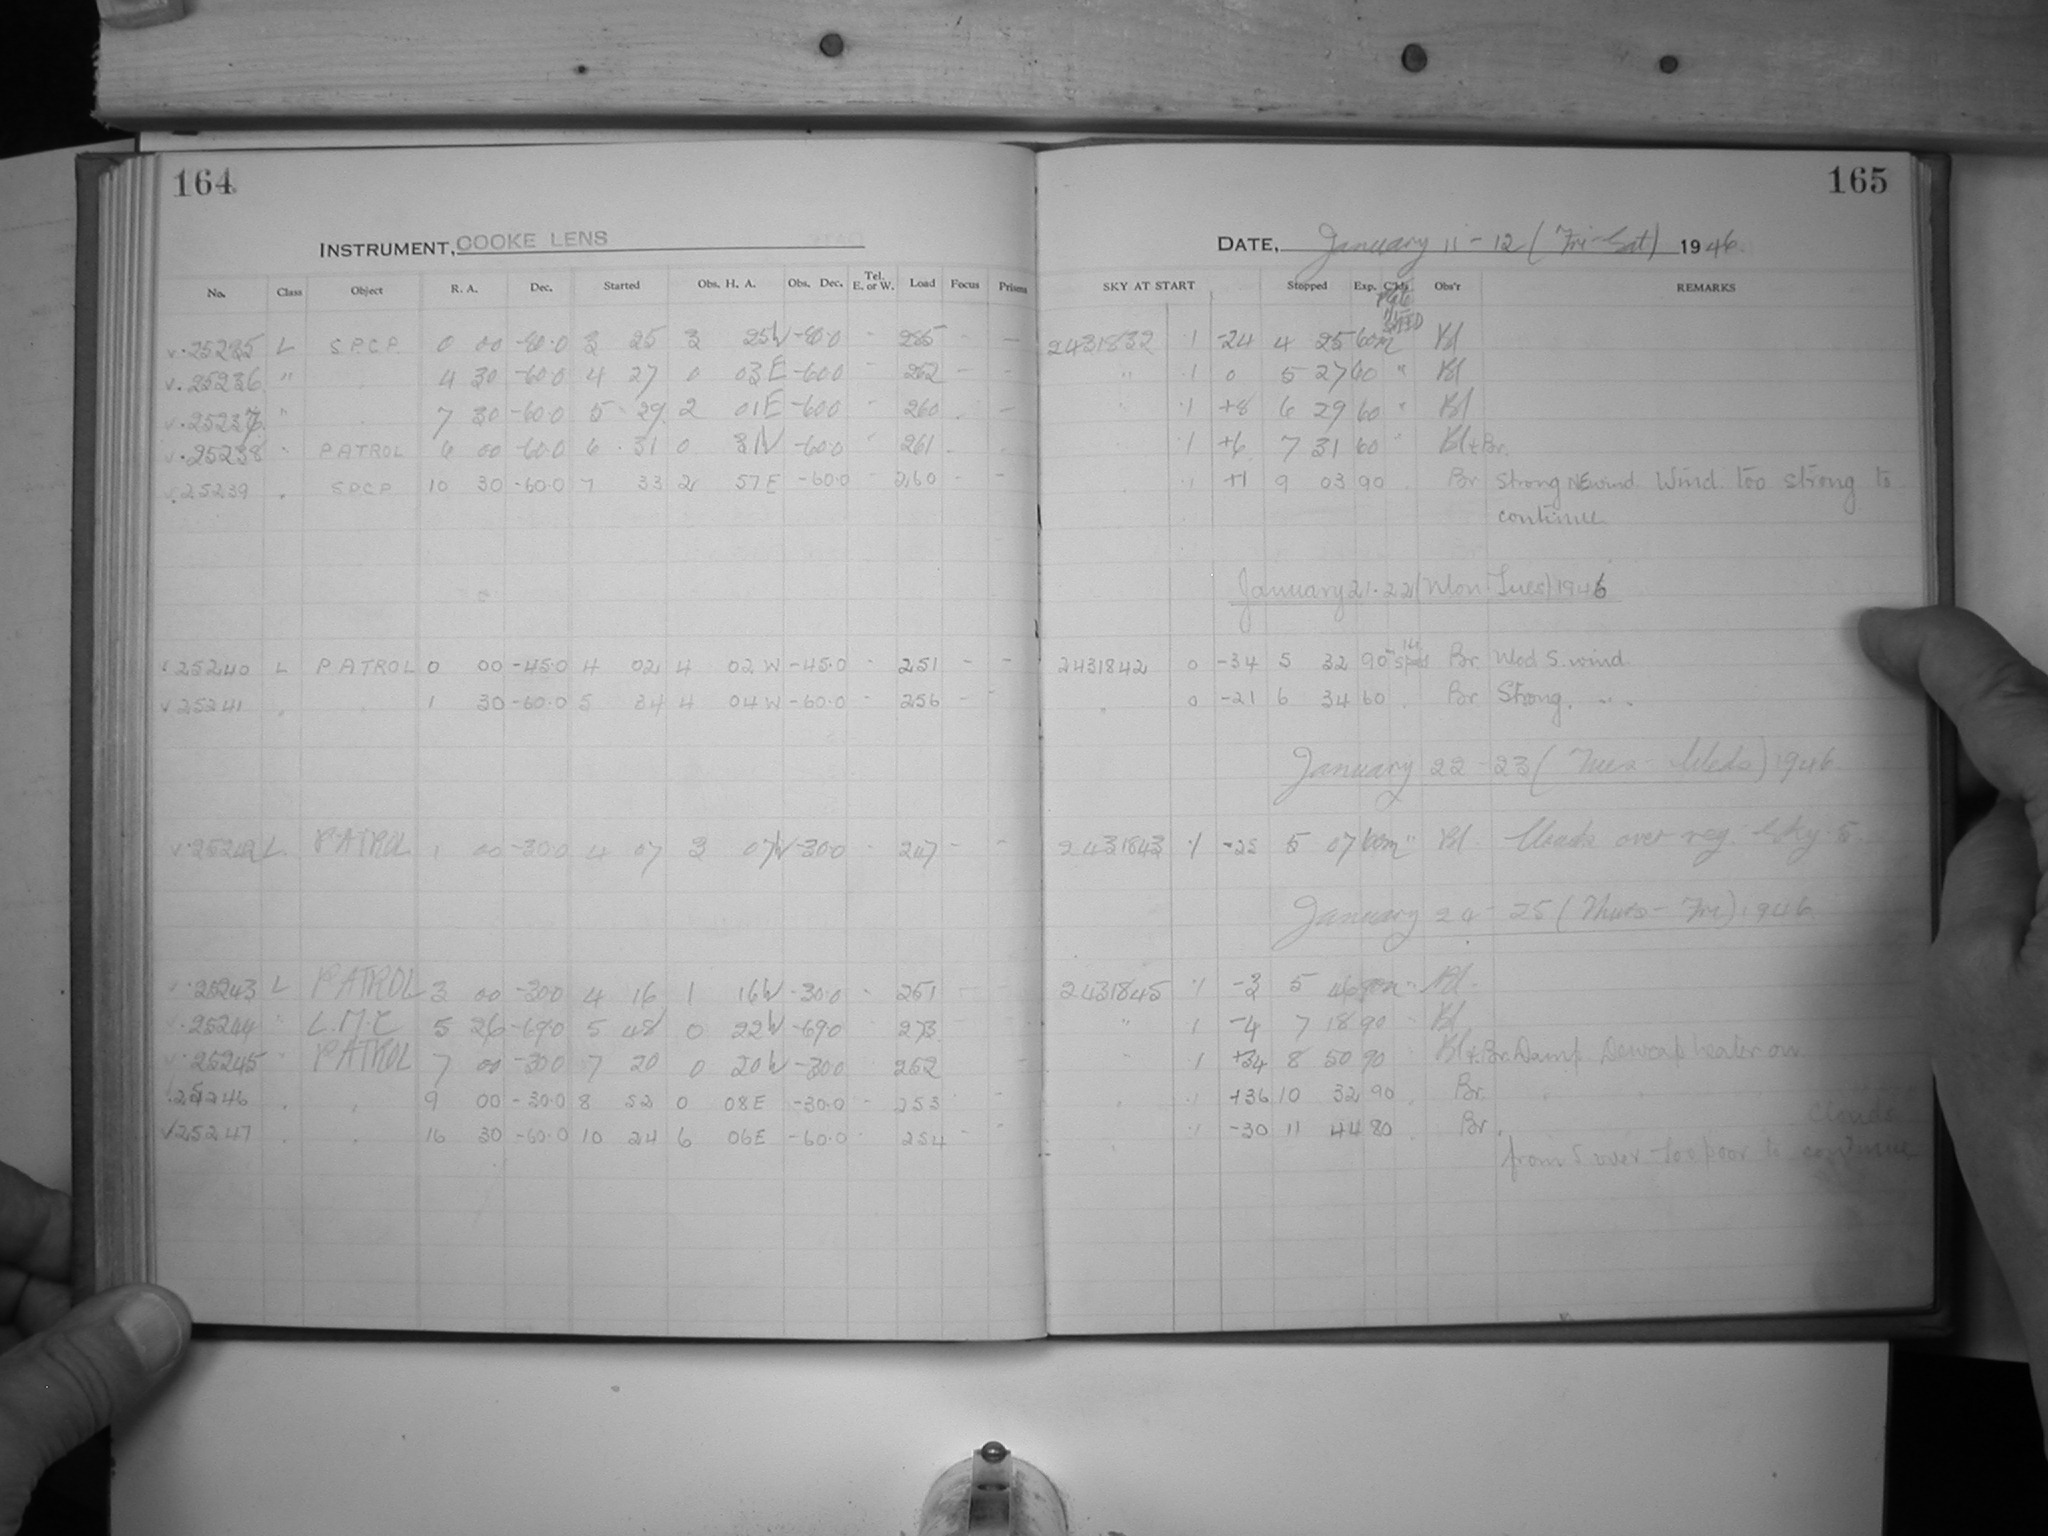 164
INSTRUMENT, COOKE LENS
No. Class Object R. A. Dec. Started Obs. H. A. Obs. Dec. Tel. E. or W. Load Focus Prisms
v.25235 L S.P.C.P. 0 00 -80.0 3 25 3 25W -80.0 - 265 - -
v.25236 " 4 30 -60.0 4 27 0 03E -60.0 - 262 - -
v.25237 " 7 30 -60.0 5 29 2 01E -60.0 - 260 - -
v.25238 " PATROL 6 00 -60.0 6 31 0 31W -60.0 - 261 -
v.25239 " S.P.C.P. 10 30 -60.0 7 33 2 57E -60.0 - 260 - -
v 25240 L PATROL 0 00 -45.0 4 02 4 02W -45.0 - 251 - -
v 25241 " " 1 30 -60.0 5 34 4 04W -60.0 - 256 - -
v.25242 L PATROL 1 00 -30.0 4 07 3 07W -30.0 - 247 - -
v.25243 L PATROL 3 00 -30.0 4 16 1 16W -30.0 - 251 - -
v.25244 " L.M.C 5 26 -69.0 5 48 0 22W -69.0 - 273
v.25245 " PATROL 7 00 -30.0 7 20 0 20W -30.0 - 252
v.25246 " " 9 00 -30.0 8 52 0 08E -30.0 - 253 - -
v25247 " " 16 30 -60.0 10 24 6 06E -60.0 - 254 - -
165
DATE, January 11-12 (Fri-Sat) 1946
SKY AT START Stopped Exp. Obs'r REMARKS
2431832 .1 -24 4 25 60m Bl
" .1 0 5 27 60 " Bl
" .1 +8 6 29 60 " Bl
.1 +6 7 31 60 " Bl+Br.
.1 +1 9 03 90 " Br Strong NE wind. Wind too strong to
continue
January 21-22 (Mon-Tues) 1946
2431842 0 -34 5 32 90 Br Mod S. wind
" 0 -21 6 34 60 " Br Strong " "
January 22-23 (Tues-Weds) 1946
2431843 .1 -25 5 07 60m " Bl. over reg. Sky 5
January 24-25 (Thurs-Fri) 1946
2431845 .1 -3 5 46 90m " Bl.
" .1 -4 7 18 90 " Bl
" .1 +34 8 50 90 Bl+Br. Damp. Dewcap heater on
" .1 +36 10 32 90 " Br. " "
.1 -30 11 44 80 " Br. Clouds
from S over - too poor to continue